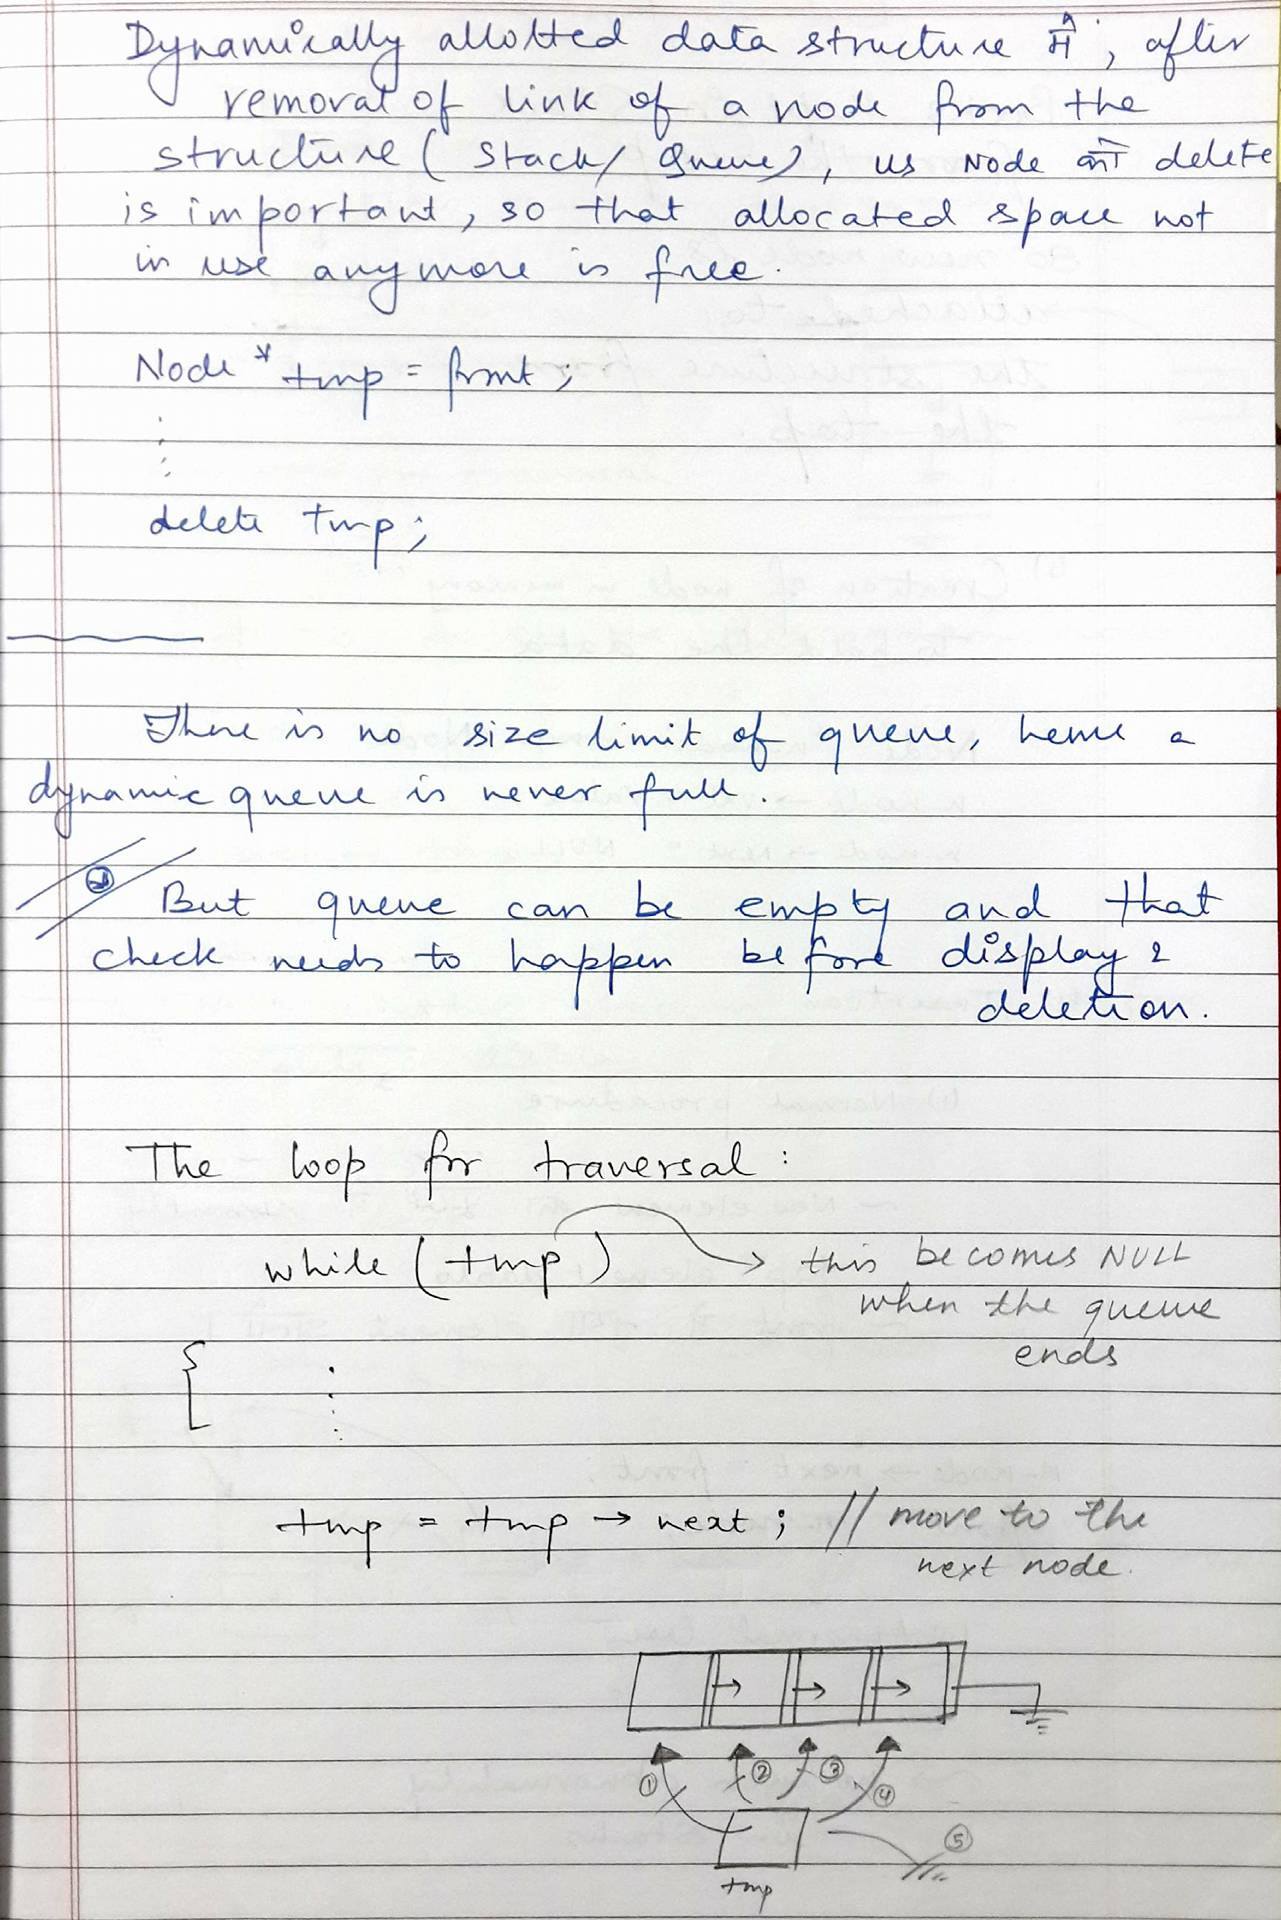 Dynamically allotted data structure में, after
removal of link of a node from the
structure (Stack/Queue), us Node को delete
is important, so that allocated space not
in use anymore is free.
Node * tmp = front;
delete tmp;
There is no size limit of queue, hence a
dynamic queue is never full.
But queue can be empty and that
check needs to happen before display &
deletion.
The loop for traversal :
while (tmp) → this becomes NULL
when the queue
ends
{
tmp = tmp → next; // move to the
next node.
① ② ③ ④
⑤
tmp